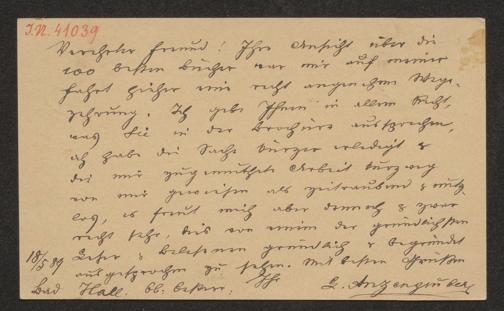 I.N. 41039
Verehrter Freund! Ihre Ansicht über die
100 besten Bücher war mir auf meiner
Fahrt hieher eine recht angenehme Wege-
zehrung. Ich gebe Ihnen in allem Recht,
was Sie in der Brochüre aussprechen,
ich habe die Sache kürzer erledigt &
die mir zugemuthete Arbeit kurzweg
von mir gewiesen als zeitraubend & nutz-
los, es freut mich aber dennoch & zwar
recht sehr, dies von einem der gründlichsten
Leser & Belesenen gründlich & begründet
18/5 89 ausgesprochen zu sehen. Mit besten Grüßen
Bad Hall. Ihr L. Anzengruber